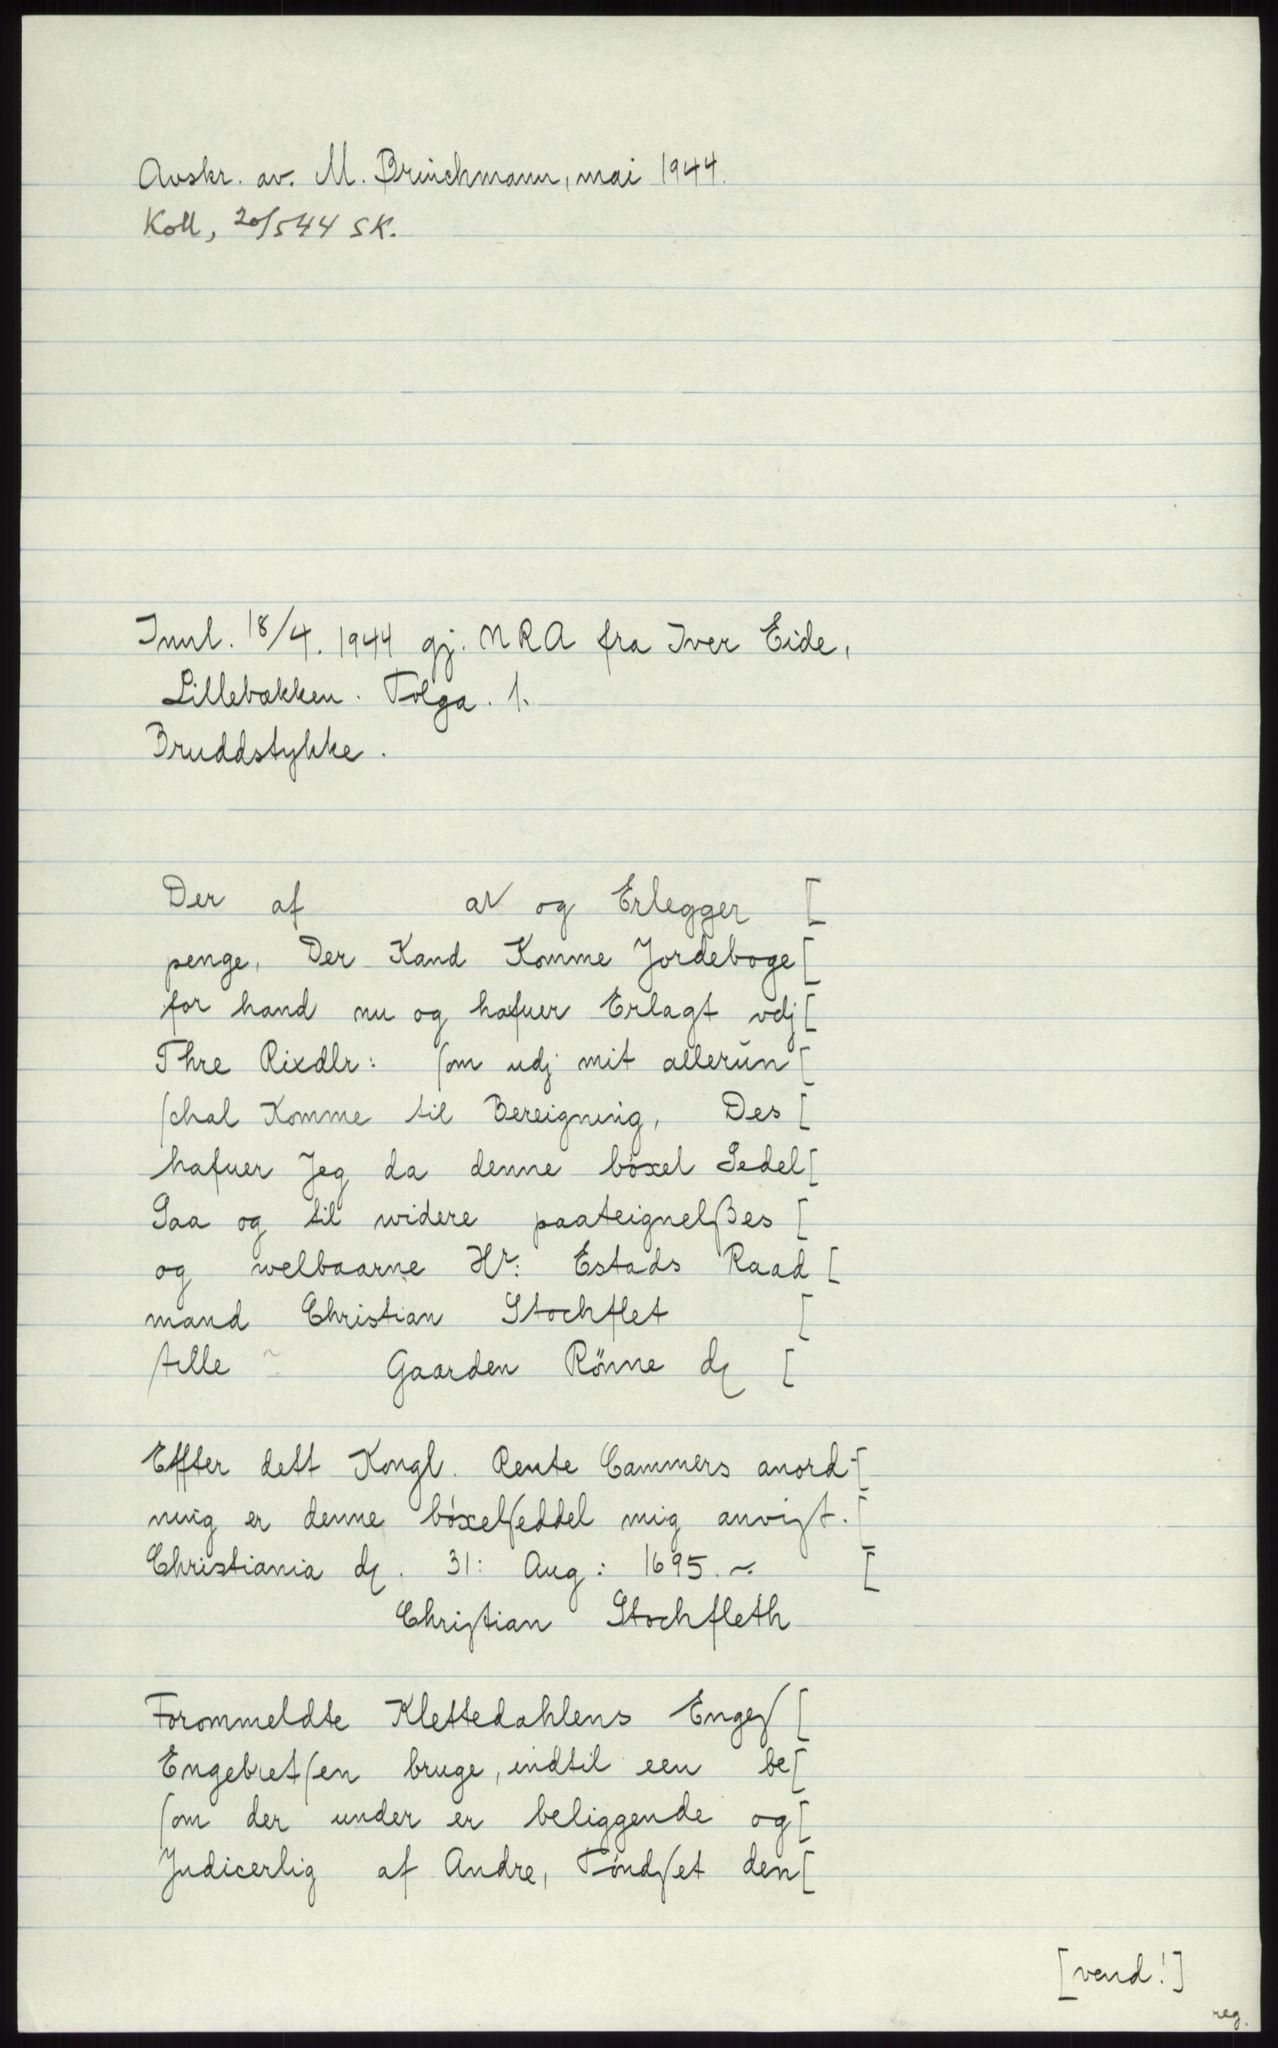 Avskr. av. M. Brinchmann, mai 1944.
Koll, 20/5 44 SK.
Innl. 18/4. 1944 gj. NRA fra Iver Eide,
Lillebækken. Tolga. 1.
Bruddstykke.
Der af at og Erlegger [
penge, Der Kand Komme Jordeboge [
for hand nu og hafuer Erlagt vdj [
Thre Rixdlr: ſom udj mit allerun [
ſchal Komme til Bereigning, Des [
hafuer Jeg da denne bóxel Sedel [
Saa og til widere paateignelßes [
og welbaarne Hr: Estads Raad [
mand Christian Stochflet [
ſtille ~ Gaarden Rönne d [
Effter dett Kongl. Rente Cammers anord- [
ning er denne bóxelſeddel mig anviſt. [
Christiania d. 31: Aug: 1695. ~ [
Chriſtian Stochfleth
Forommeldte Klettedahlens Engeſ [
Engebretſen bruge, indtil een be [
ſom der under er beliggende og [
Judicerlig af Andre, Tóndſet den [
[vend!]
reg.